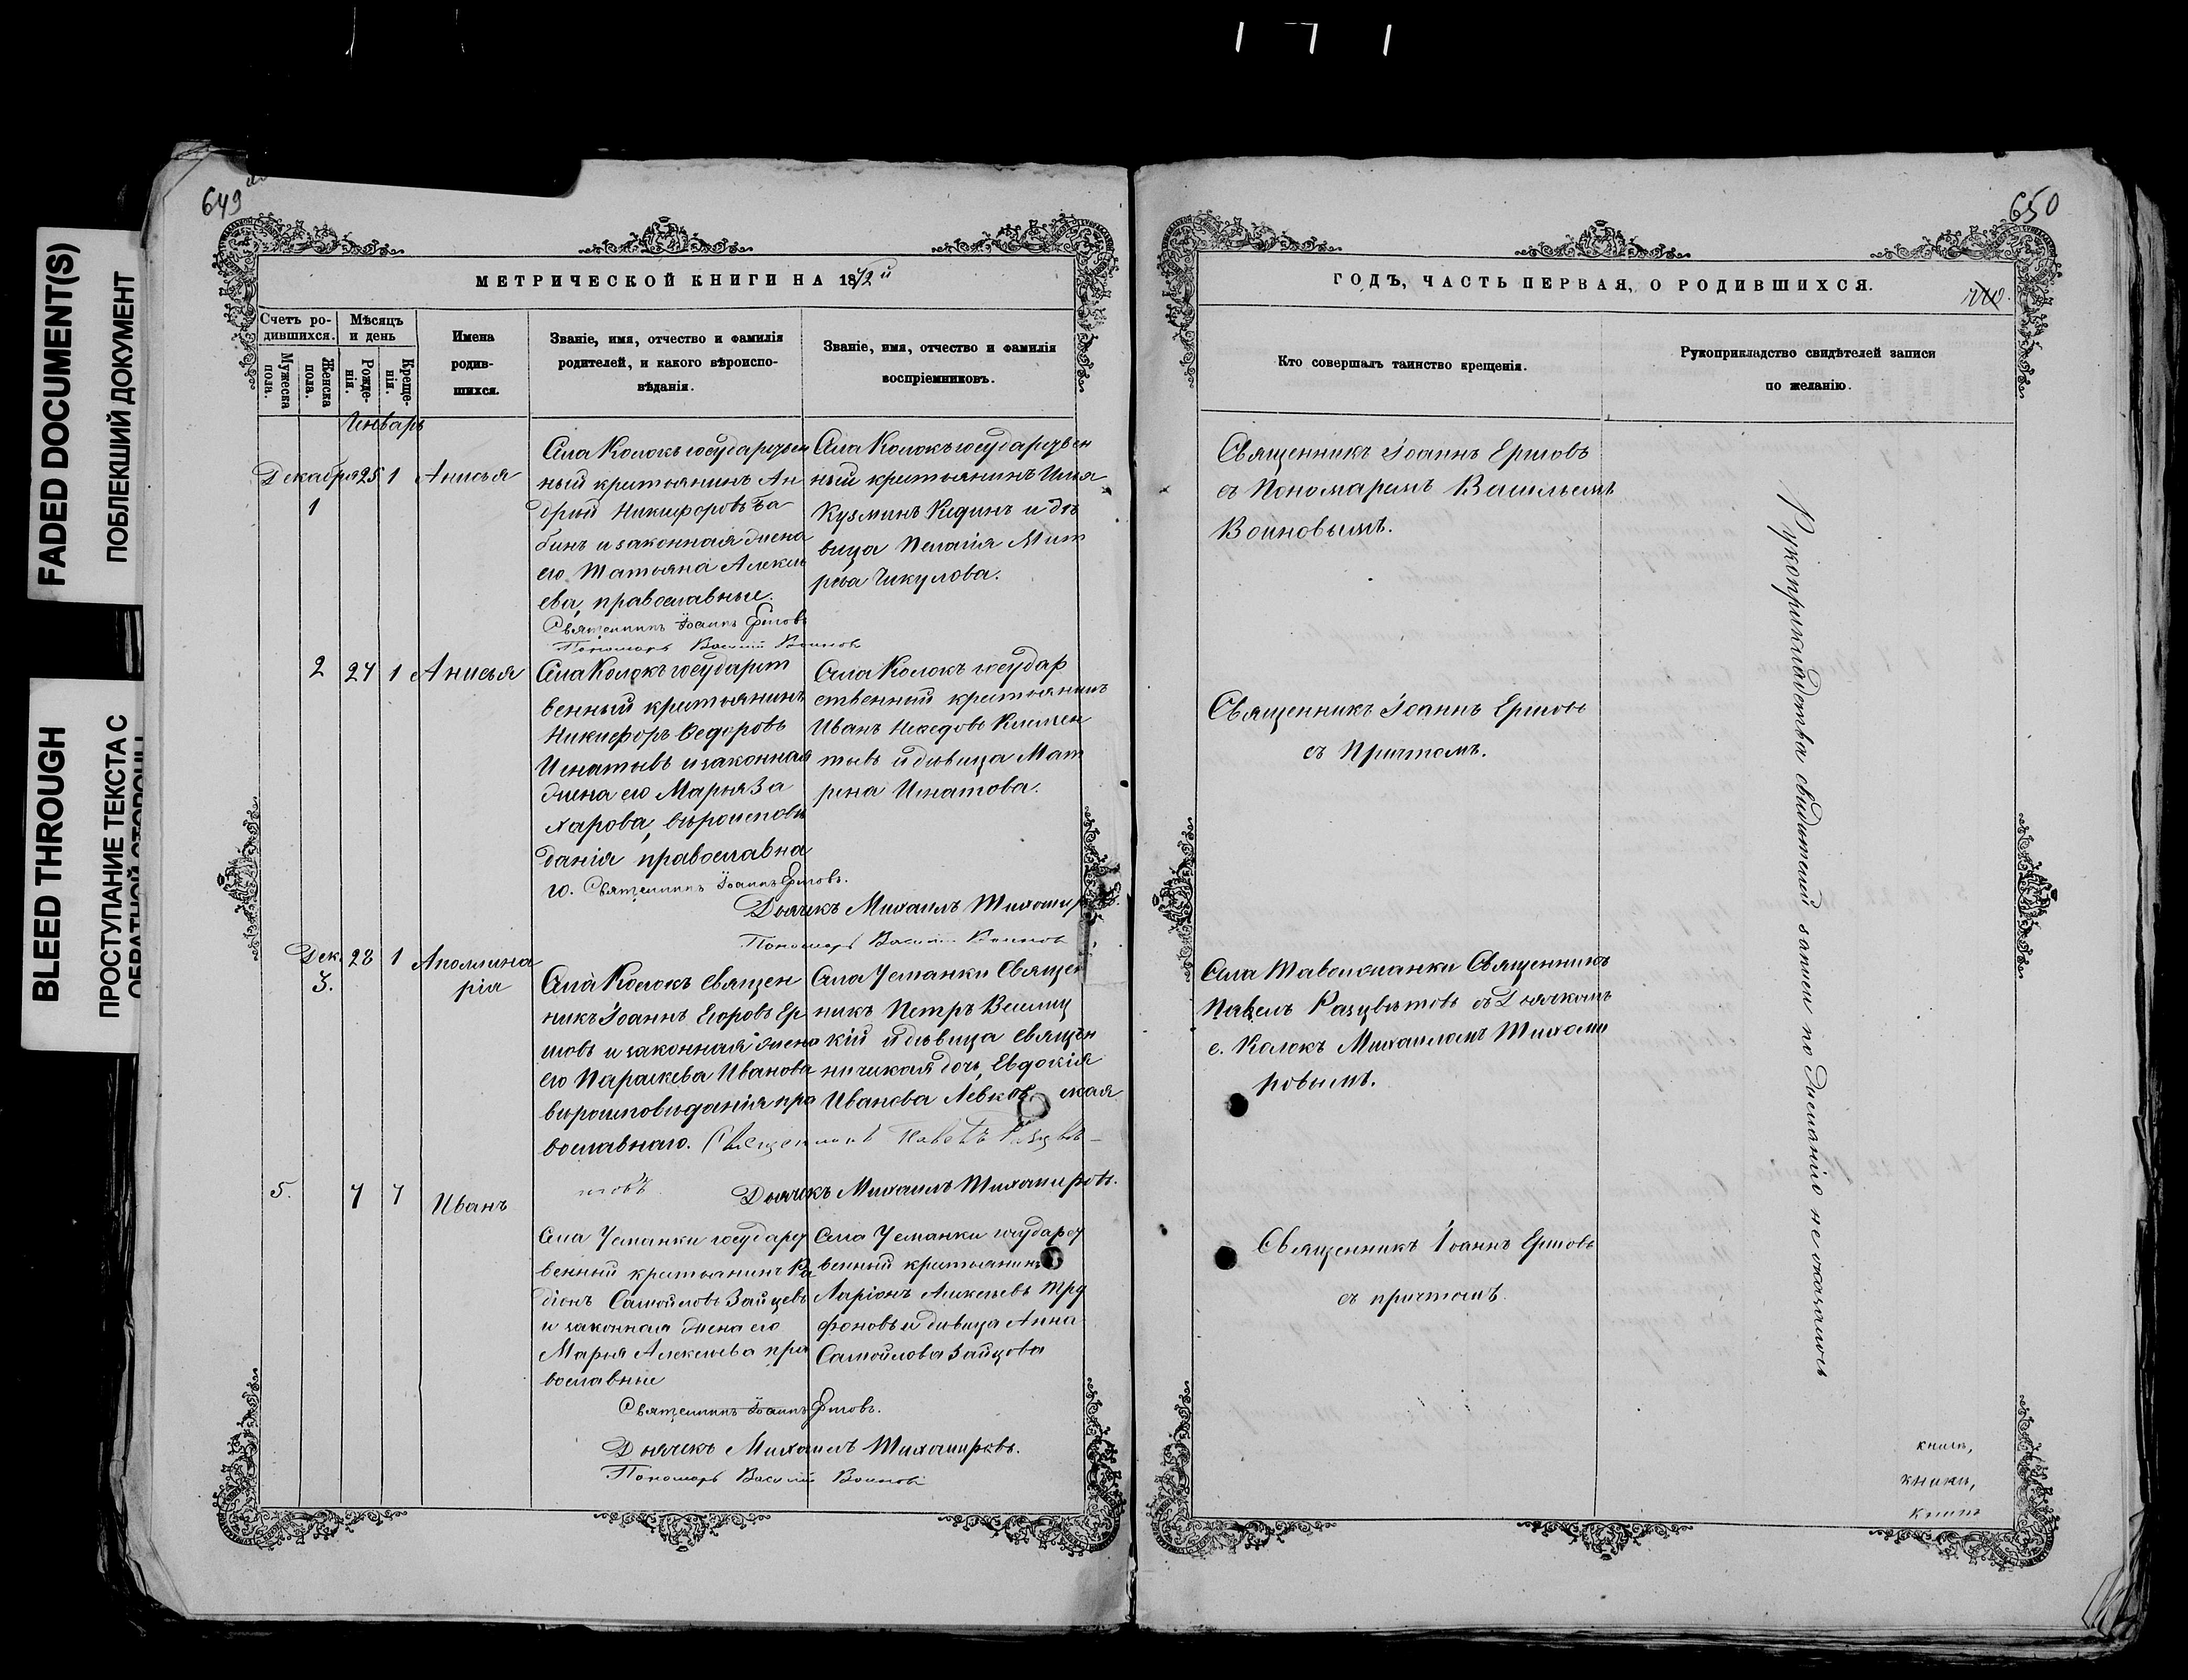 1 7 1
FADED DOCUMENT(S)
ПОБЛЕКШИЙ ДОКУМЕНТ
BLEED THROUGH
ПРОСТУПАНИЕ ТЕКСТА С
ОБРАТНОЙ СТОРОНЫ
649
МЕТРИЧЕСКОЙ КНИГИ НА 1872й
Счетъ ро-
дившихся.
Мужеска
пола.
Женска
пола.
Мѣсяцъ
и день
Рожде-
нія.
Креще-
нія.
Имена
родив-
шихся.
Званіе, имя, отчество и фамилія
родителей, и какого вѣроиспо-
вѣданія.
Званіе, имя, отчество и фамилія
воспріемниковъ.
Генварь
Декабря 25 1 Анисья
1
Села Колокъ государствен
ный крестьянинъ Ан
дрей Никифоровъ Ба
бинъ и законная жена
его Татьяна Алексѣ
ева, православные.
Священникъ Іоаннъ Ершовъ
Пономарь Василій Воиновъ
Села Колокъ государствен
ный крестьянинъ Илья
Кузминъ Кединъ и дѣ
вица Пелагія Мит
рева Чикулова.
2 27 1 Анисья
Села Колокъ государст
венный крестьянинъ
Никифоръ Ѳедоровъ
Игнатьевъ и законная
жена его Марья За
харова, вѣроисповѣ
данія православна
го. Священникъ Іоаннъ Ершовъ.
Дьячекъ Михаилъ Тихомир
Пономарь Василій Воиновъ
Села Колокъ государ
ственный крестьянинъ
Иванъ Клемен
тьевъ и дѣвица Мат
рена Игнатова.
Дек. 28 1 Аполлина
3. рія
Села Колокъ Священ
никъ Іоаннъ Егоровъ Ер
шовъ и законная жена
его Параскева Иванова
вѣроисповѣданія пра
вославнаго. Священникъ Павелъ Разцвѣ-
товъ
Дьячекъ Михаилъ Тихомировъ.
Села Усманки Священ
никъ Петръ Велиц
кій и дѣвица Священ
ническая дочь, Евдокія
Иванова Левков ская
5. 7 7 Иванъ
Села Усманки государст
венный крестьянинъ Ра
діонъ Самойловъ Зайцевъ
и законная жена его
Марья Алексеева пра
вославные
Священникъ Іоаннъ Ершовъ.
Дьячекъ Михаилъ Тихомировъ.
Пономарь Василій Воиновъ
Села Усманки государст
венный крестьянинъ
Ларіонъ Алексеевъ Тро
фоновъ и дѣвица Анна
Самойлова Зайцова
650
ГОДЪ, ЧАСТЬ ПЕРВАЯ, О РОДИВШИХСЯ.
Кто совершалъ таинство крещенія.
Рукоприкладство свидѣтелей записи
по желанію.
Священникъ Іоаннъ Ершовъ
съ Пономаремъ Васильемъ
Воиновымъ.
Священникъ Іоаннъ Ершовъ
съ Причтомъ.
Села Таволжанки Священникъ
Павелъ Разцвѣтовъ съ Дьячкомъ
с. Колокъ Михаиломъ Тихоми
ровымъ.
Священникъ Іоаннъ Ершовъ
съ причтомъ.
Рукоприкладства свидѣтелей записи по желанію не оказалось
книги,